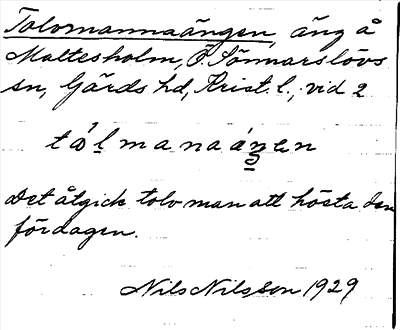 Tolvmannaängen, äng å
Maltesholm, Ö. Sönnarslövs
sn, Gärds hd, Krist. l., vid 2
Det åtgick tolv man att hösta den
för dagen.
Nils Nilsson 1929